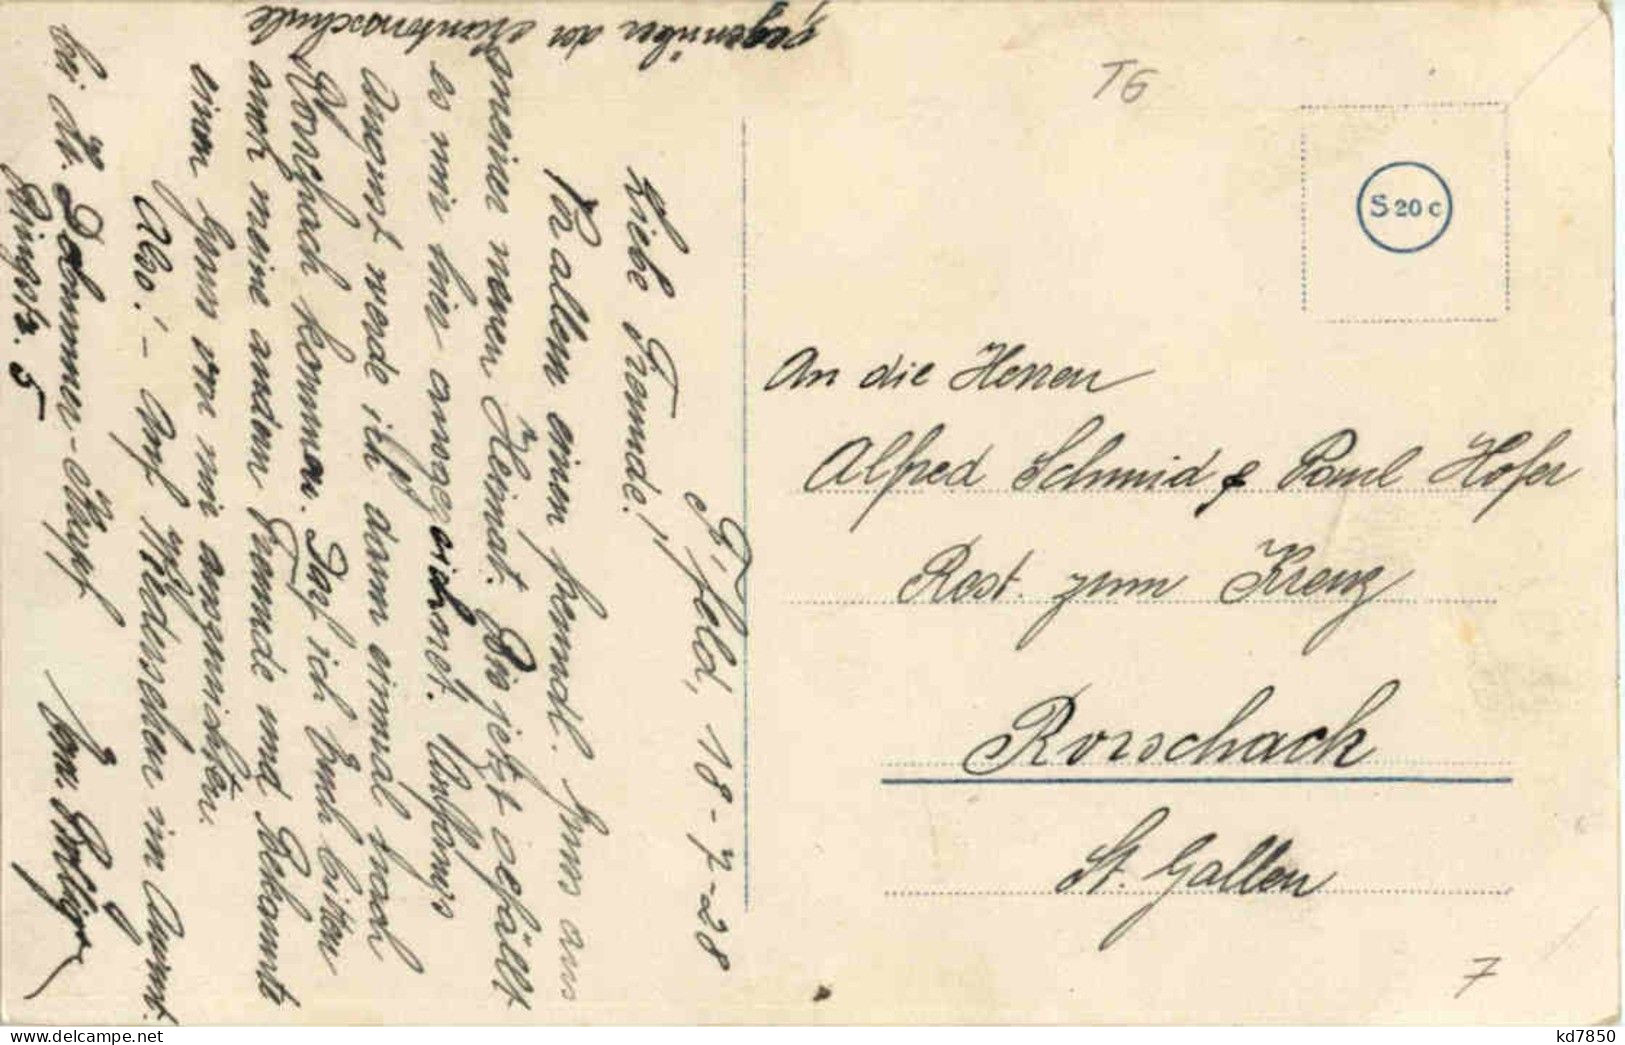 F'feld, 18-7-28
Liebe Freunde!
Vor allem einen freundl. Gruss aus
meiner neuen Heimat. Bis jetzt gefällt
es mir hier ausgezeichnet. Anfangs
August werde ich dann einmal nach
Rorschach kommen. Darf ich Euch bitten
auch meine andern Freunde und Bekannte
einen Gruss von mir auszurichten.
Also! – Auf Wiedersehen im August.
bei Hr. Debrunner-
Ringstr. 5
gegenüber der Kantonsschule
T6
S 20 c
An die Herren
Alfred Schmid & Paul Hofer
Rest. zum Kreuz
Rorschach
St. Gallen
7
kd7850